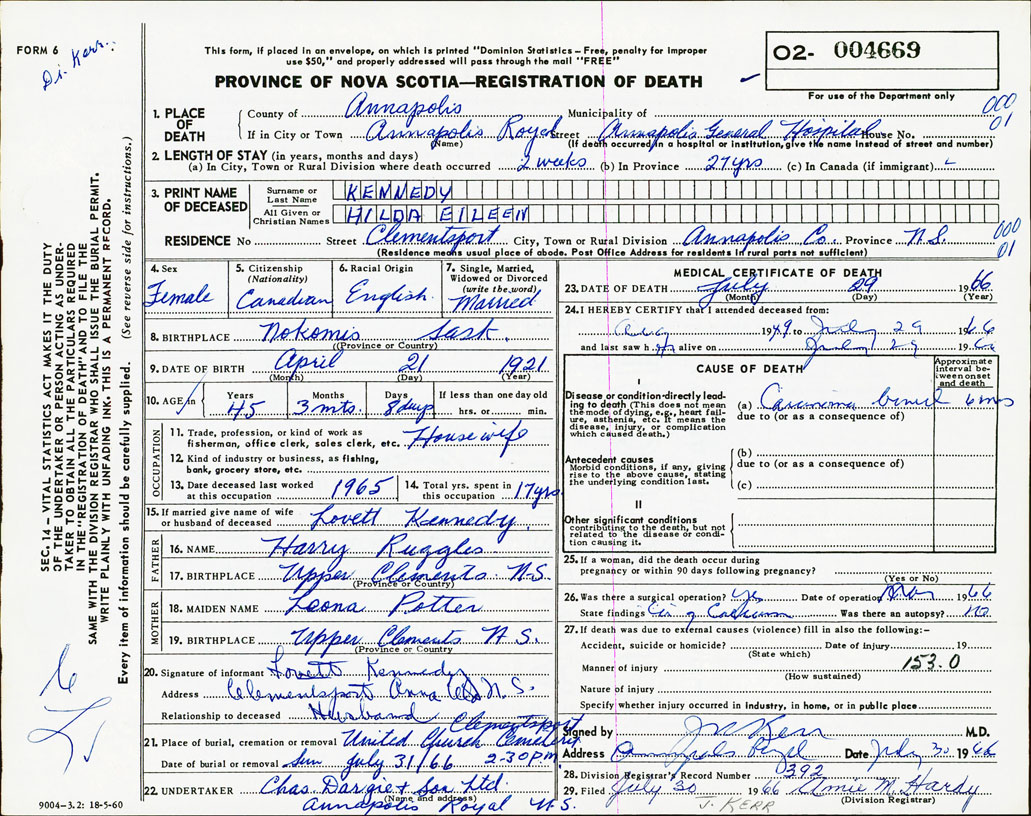 FORM 6
Dr. Kerr.
This form, if placed in an envelope, on which is printed "Dominion Statistics – Free, penalty for improper
use $50," and properly addressed will pass through the mail "FREE"
PROVINCE OF NOVA SCOTIA—REGISTRATION OF DEATH
O2- 004669
For use of the Department only
000
01
1. PLACE OF DEATH
County of Annapolis Municipality of
If in City or Town Annapolis Royal Street Annapolis General Hospital House No.
(Name) (If death occurred in a hospital or institution, give the name instead of street and number)
2. LENGTH OF STAY (in years, months and days)
(a) In City, Town or Rural Division where death occurred 2 weeks (b) In Province 27 yrs (c) In Canada (if immigrant)
3. PRINT NAME OF DECEASED
Surname or Last Name KENNEDY
All Given or Christian Names HILDA EILEEN
RESIDENCE No Street Clementsport City, Town or Rural Division Annapolis Co. Province N.S.
000
01
(Residence means usual place of abode. Post Office Address for residents in rural parts not sufficient)
4. Sex Female
5. Citizenship (Nationality) Canadian
6. Racial Origin English.
7. Single, Married, Widowed or Divorced (write the word) Married
8. BIRTHPLACE Nokomis Sask.
(Province or Country)
9. DATE OF BIRTH April 21 1921
(Month) (Day) (Year)
10. AGE Years 45 Months 3 mts. Days 8 days If less than one day old hrs. or min.
OCCUPATION
11. Trade, profession, or kind of work as
fisherman, office clerk, sales clerk, etc. Housewife
12. Kind of industry or business, as fishing,
bank, grocery store, etc.
13. Date deceased last worked at this occupation 1965
14. Total yrs. spent in this occupation 17 yrs
15. If married give name of wife or husband of deceased Lovett Kennedy.
FATHER
16. NAME Harry Ruggles
17. BIRTHPLACE Upper Clements N.S.
(Province or Country)
MOTHER
18. MAIDEN NAME Leona Potter
19. BIRTHPLACE Upper Clements N.S.
(Province or Country)
20. Signature of informant Lovett Kennedy
Address Clementsport Anna Co N.S.
Relationship to deceased Husband
21. Place of burial, cremation or removal United Church Cemetery Clementsport
Date of burial or removal Sun July 31/66 2-30 PM
22. UNDERTAKER Chas. Dargie + Son Ltd.
(Name and address)
Annapolis Royal N.S.
MEDICAL CERTIFICATE OF DEATH
23. DATE OF DEATH July 29 1966
(Month) (Day) (Year)
24. I HEREBY CERTIFY that I attended deceased from:
Aug 1949 to July 29 1966
and last saw h er alive on July 29 1966
CAUSE OF DEATH
Approximate interval between onset and death
I
Disease or condition directly leading to death (This does not mean the mode of dying, e.g., heart failure, asthenia, etc. It means the disease, injury, or complication which caused death.)
(a) Carcinoma bowel 6 mos
due to (or as a consequence of)
Antecedent causes
Morbid conditions, if any, giving rise to the above cause, stating the underlying condition last.
(b)
due to (or as a consequence of)
(c)
II
Other significant conditions
contributing to the death, but not related to the disease or condition causing it.
25. If a woman, did the death occur during
pregnancy or within 90 days following pregnancy?
(Yes or No)
26. Was there a surgical operation? Yes Date of operation Mar 1966
State findings Was there an autopsy? no
27. If death was due to external causes (violence) fill in also the following:–
Accident, suicide or homicide? Date of injury 19
(State which)
Manner of injury 153.0
(How sustained)
Nature of injury
Specify whether injury occurred in industry, in home, or in public place
Signed by Kerr M.D.
Address Annapolis Royal Date July 30 1966
28. Division Registrar's Record Number 392
29. Filed July 30 1966 Amie M. Hardy
(Division Registrar)
J. KERR
SEC. 14 – VITAL STATISTICS ACT MAKES IT THE DUTY
OF THE UNDERTAKER OR PERSON ACTING AS UNDER-
TAKER TO OBTAIN ALL THE PARTICULARS REQUIRED
IN THE "REGISTRATION OF DEATH" AND TO FILE THE
SAME WITH THE DIVISION REGISTRAR WHO SHALL ISSUE THE BURIAL PERMIT.
WRITE PLAINLY WITH UNFADING INK. THIS IS A PERMANENT RECORD.
Every item of information should be carefully supplied. (See reverse side for instructions.)
9004-3.2: 18-5-60